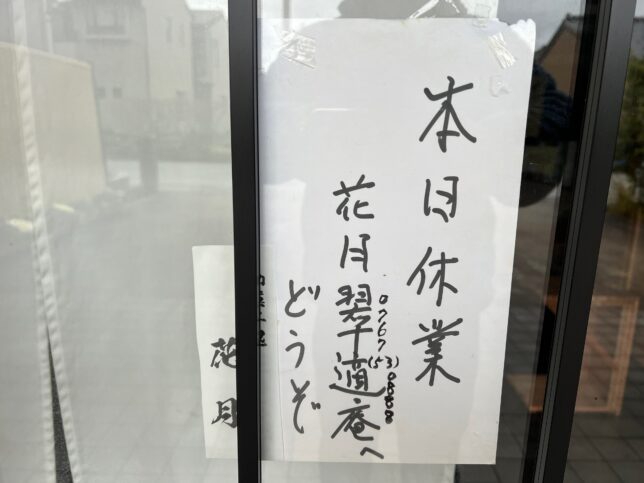 本日休業
花月翠適庵へ
0767(53)0888
どうぞ
花月